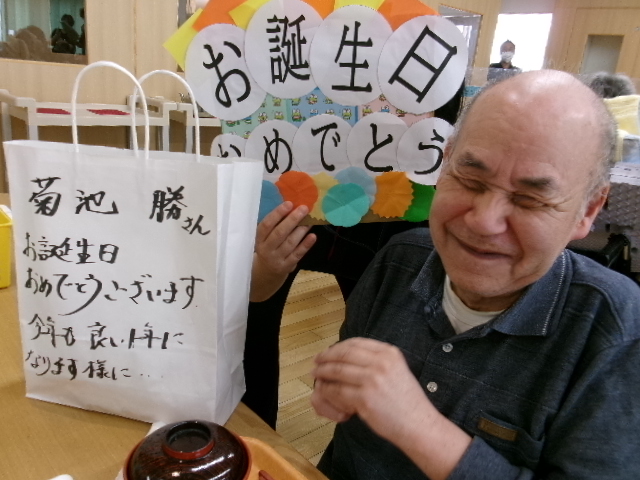 お誕生日
おめでとう
菊池 勝さん
お誕生日
おめでとうございます
今年も良い1年に
なります様に...